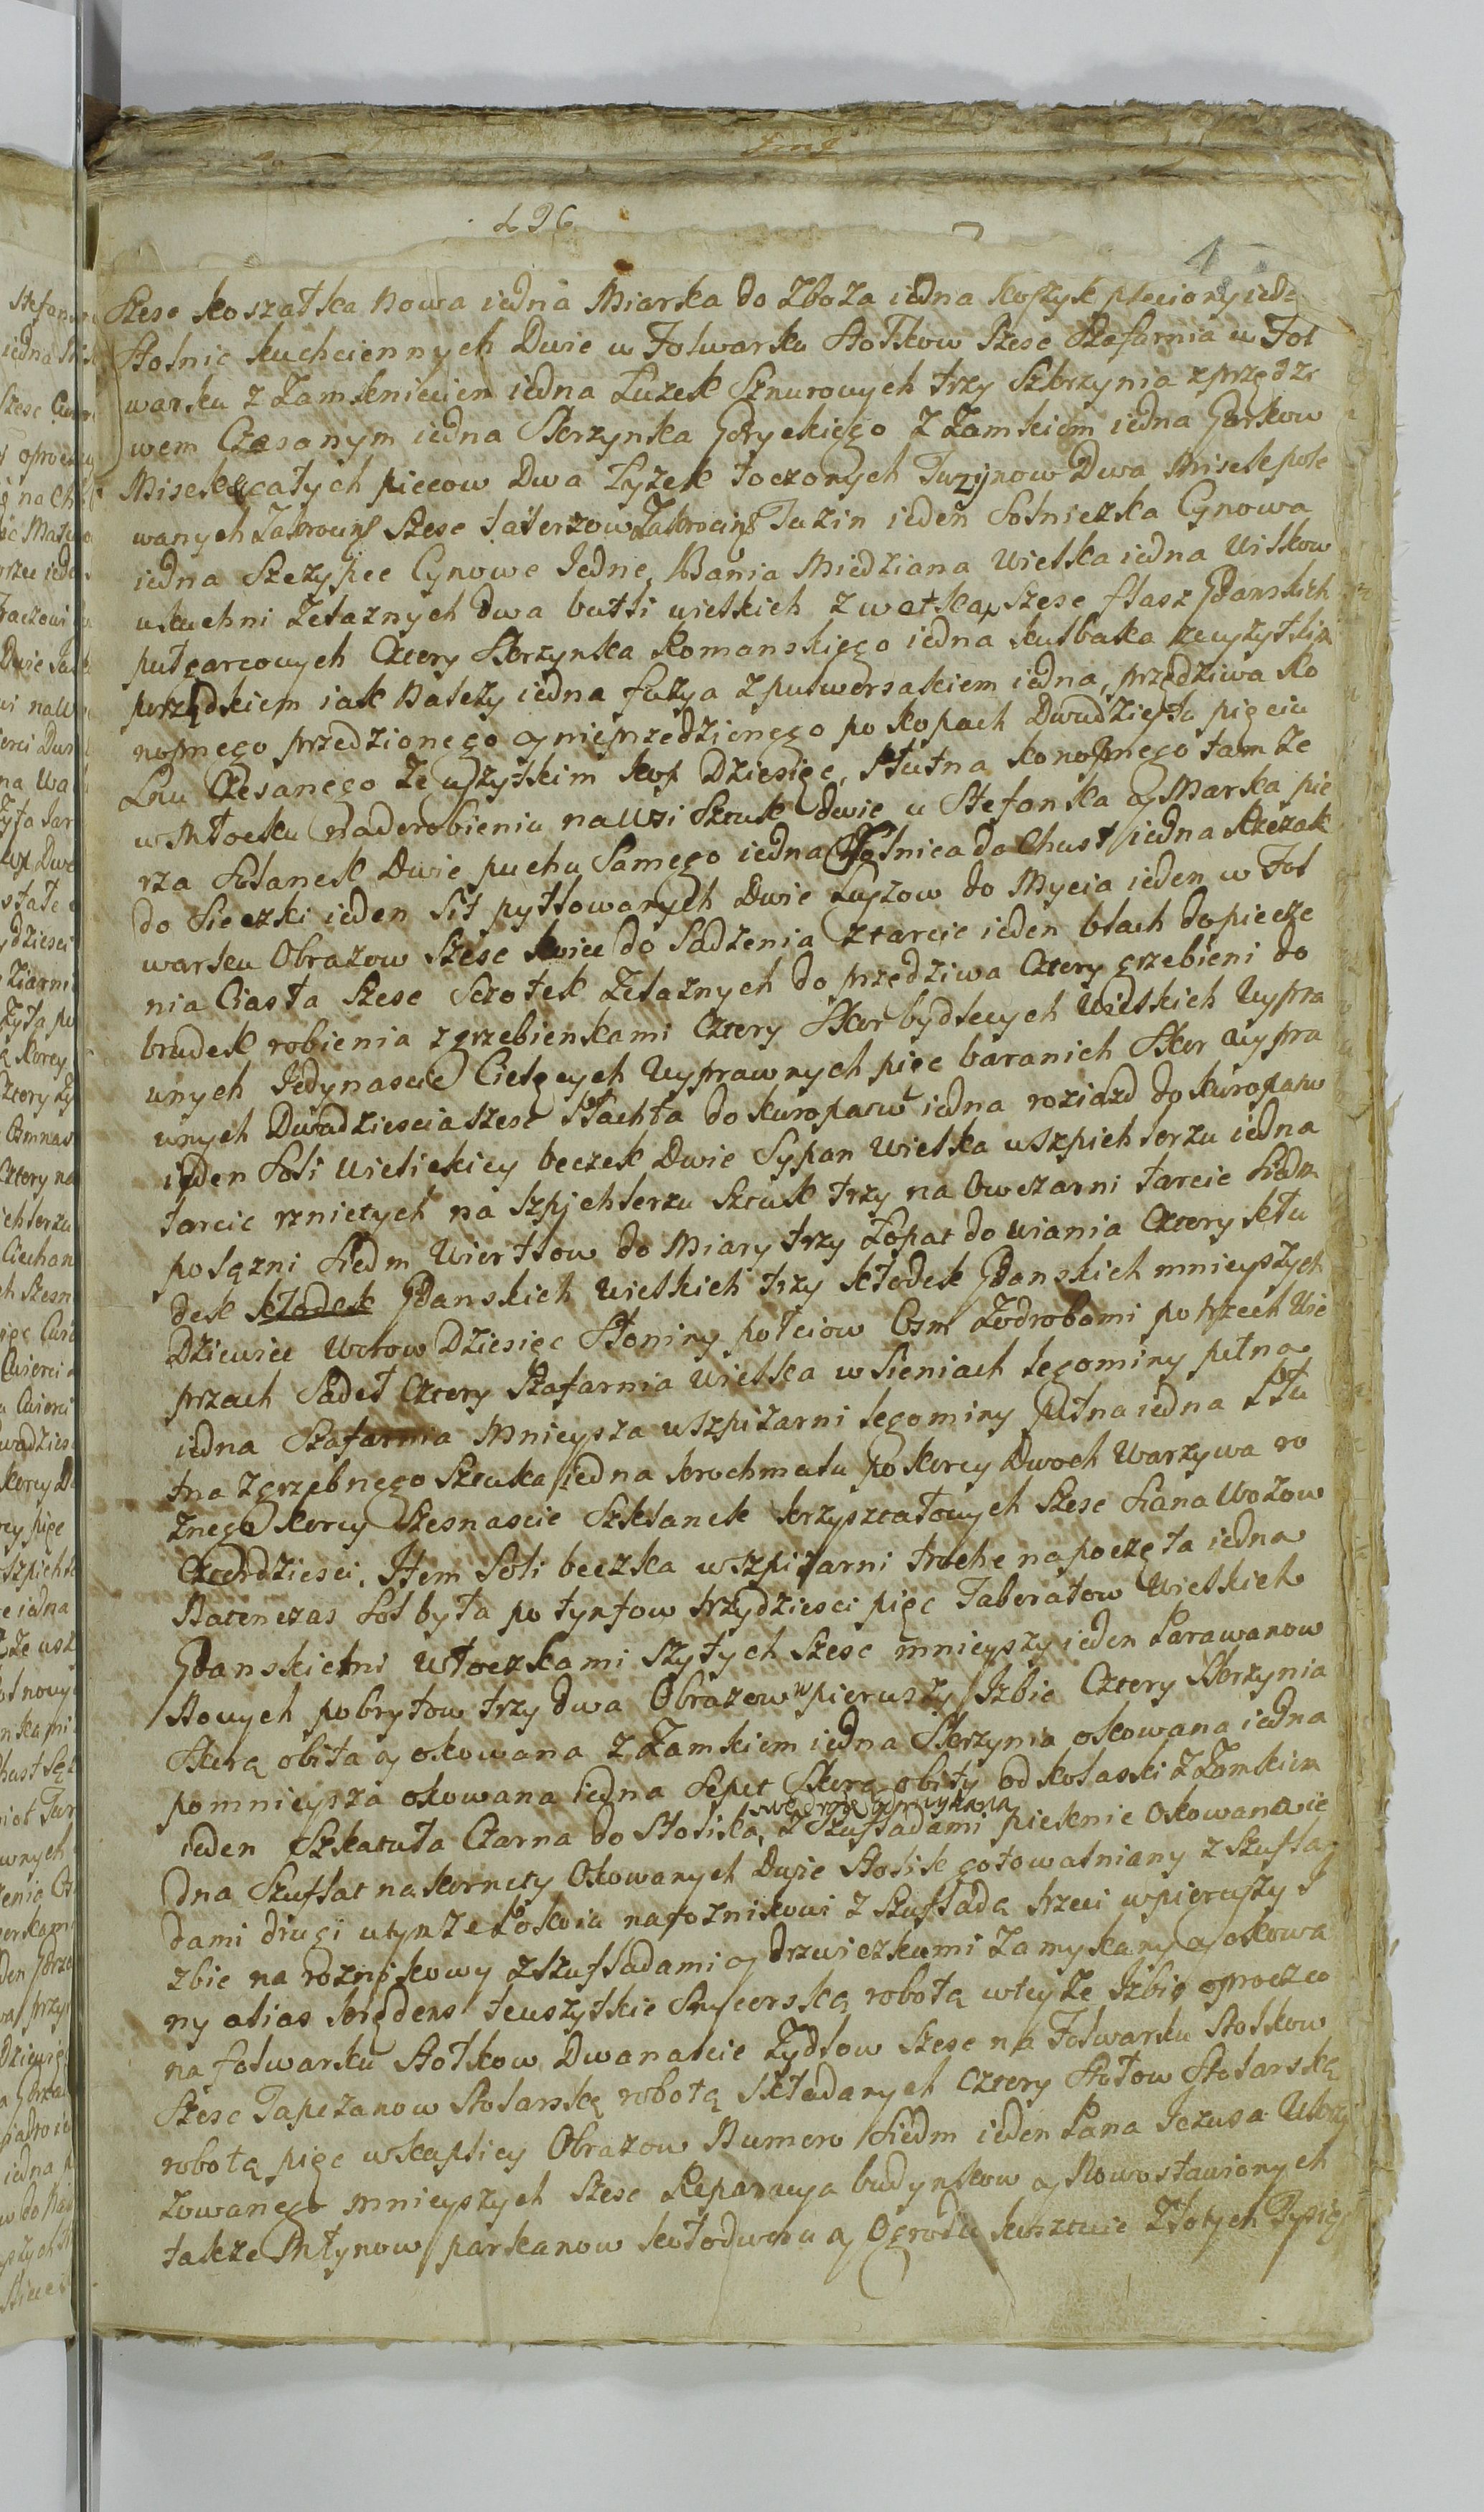 496
Szesc koszałka nowa iedna Miarka do Zboza iedna koszyk pleciony iede
Stolnic kuchciennych Dwie w Folwarku Stołkow Szesc Szafarnia w Fol
warku z Zamknieciem iedna Łuzek Sznurowych trzy Skrzynia z przędzi
wem Czesanym iedna Skrzynka Gdyckiego Z Zamkiem iedna Garkow
Misek całych piecow Dwa Łyzek toczonych Tuzynow Dwa Misek pole
wanych Zakrocins Szesc talerzow Zakrocins Tuzin ieden Solniczka Cynowa
iedna Szczypce Cynowe Iedne, Bania Miedziana Wielka iedna Wilkow
w kuchni Zelaznych dwa butli wielkich Szesc flasz Gdanskich
pułgarcowych Cztery Skrzynka Romanskiego iedna kulbaka ze wszytkim
porządkiem iak Nalezy iedna fuzya z pulwersakiem iedna, przędziwa ko
nopnego przedzionego y nieprzedzionego po kopach Dwudziestu pięciu
Lnu Czesanego Ze wszytkim kop Dziesięc, Płutna konopnego tamze
w Młocku nadorobieniu na Wsi Sztuk dwie u Stefanka y Marka pie
rza Solanek Dwie puchu Samego iedna Stolnica do Chust iedna Rzezak
do Sieczki ieden Sit pytlowanych Dwie Ługzow do Mycia ieden w Fol
warku Obrazow Szesc do Sadzenia z tarcic ieden blach do piecze
nia Ciasta Szesc Sczotek Zelaznych do przędziwa Cztery grzebieni do
brudek robienia z grzebienkami Cztery Skor bydlecych Wielkich Wypra
wnych Iedynascie Cielęcych Wyprawnych pięc baranich Skor Wypra
wnych Dwadziescia szesc Płachta do kuropatw iedna roziazd do kuropatw
ieden Soli Wielickiey beczek Dwie Sypan Wielka w Szpichlerzu iedna
tarcic rznietych na Szpichlerzu Sztuk trzy na Owczarni tarcic Siedm
polązni Siedm Wiertłow do Miary trzy Łopat do wiania Cztery kłu
dek kłodek Gdanskich Wielkich trzy kłodek Gdanskich mnieyszych
Dziewiec Wołow Dziesięc Słoniny połciow Osm Zodrobami po trzech Wie
przach Sadeł Cztery Szafarnia Wielka w Sieniach legominy pełna
iedna Szafarnia Mnieysza w Szpizarni legominy pełna iedna Płu
tna zgrzebnego Sztuka iedna krochmalu po korcy Dwoch Warzywa ro
znego korcy Szesnascie Szklanek krzysztalowych Szesc Siana Wozow
Czterdziesci, Item Soli beczka w szpizarni troche napoczęta iedna
Natenczas Sol była po tynfow trzydziesci pięc Taboratow Wielkich
Gdanskiemi Włoczkami Szytych Szesc mnieyszy ieden Parawanow
Nowych po brytow trzy dwa Obrazow w pierwszy Izbie Cztery Skrzynia
Skurą obita y okowana z Zamkiem iedna Skrzynia okowana iedna
pomnieysza okowana iedna Sepet Skurą obity od kolaski z Zamkiem
ieden Szkatuła Czarna do Stolika, z Szufladami pieknie Okowana ie
dna Szuflat na kornety Okowanych Dwie Stolik gotowalniany z Szufla
dami drugi w tymze Pokoiu narozníkowi z Szufladą trzeci w pierwszy I
zbie na roznikowy z Szufladami y drzwiczkami Zamykany y okowa
ny alias krędens te wszytkie Snycerską robotą w teyze Izbie oprocz co
na folwarku Stołkow Dwanascie Zydlow Szesc na Folwarku Stołkow
Szesc Tapczanow Stolarską robotą Składanych Cztery Stołow Stolarską
robotą pięc w kaplicy Obrazow Numero Siedm ieden Pana Iezusa Ukrzy
zowanego mnieyszych Szesc Reparacya budynkow y Nowostawionych
takze Młynow parkanow koło dworu y Ogrodu kosztuie Złotych Tysią